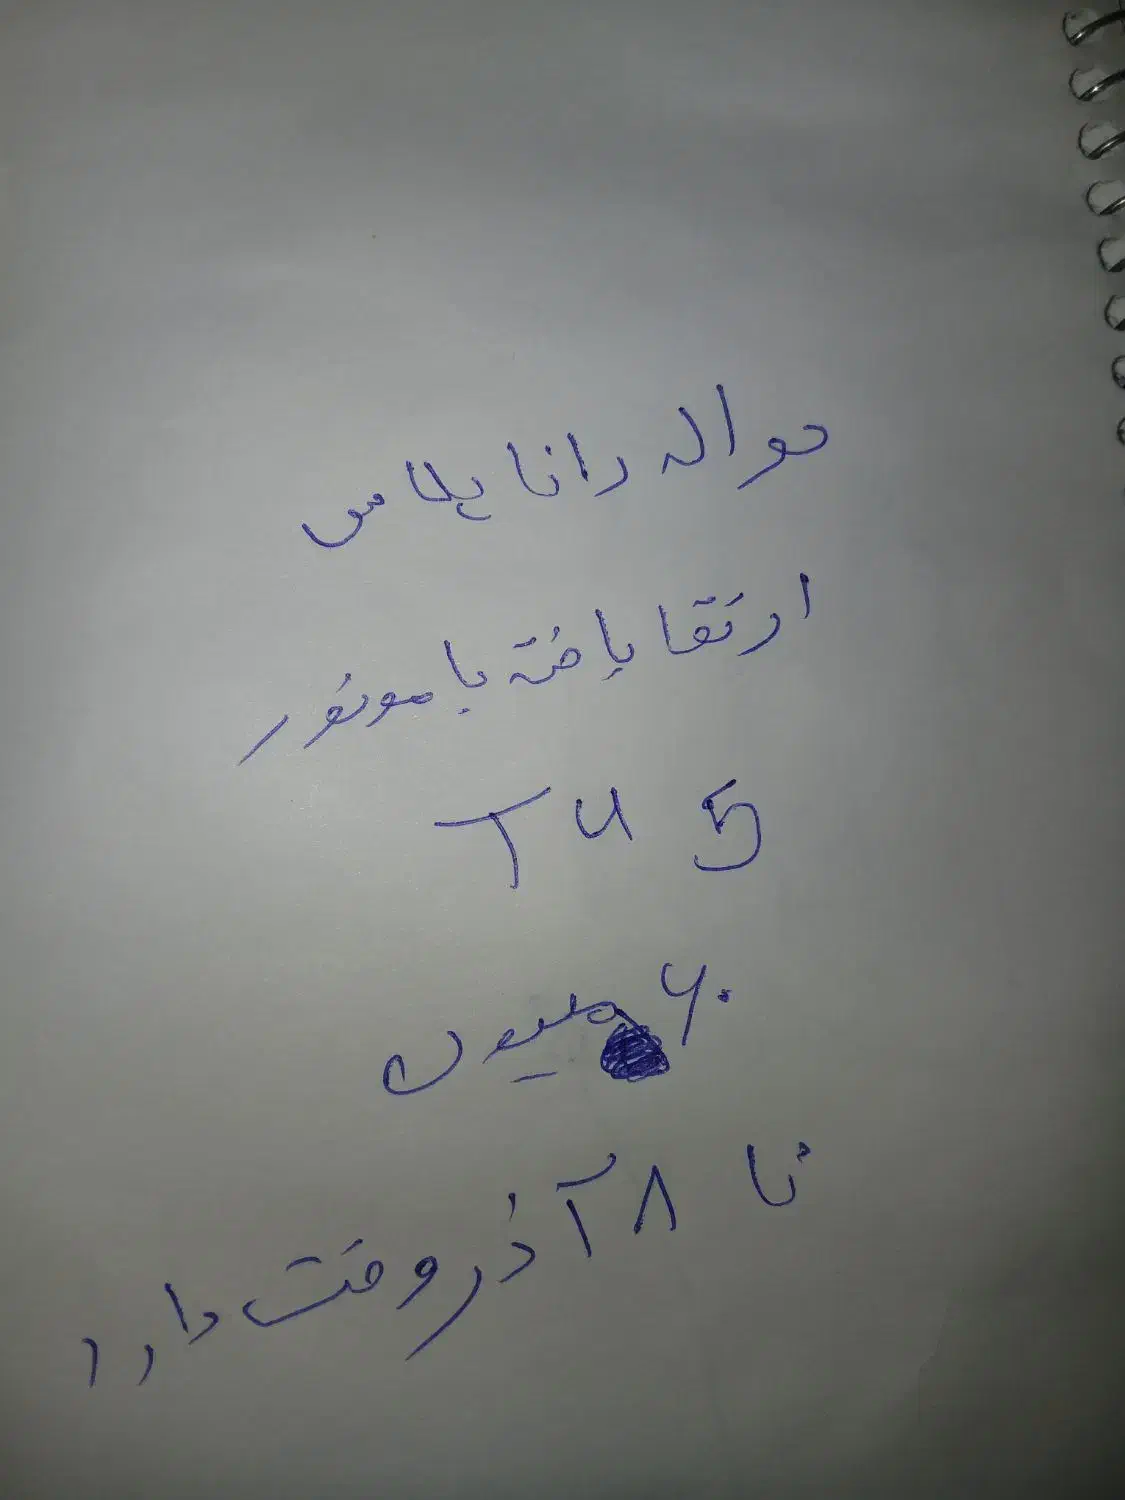 حواله رانا پلاس
ارتقا یافته با موتور
TU 5
۶۰ میلیون
تا ۸ آذر وقت دارد